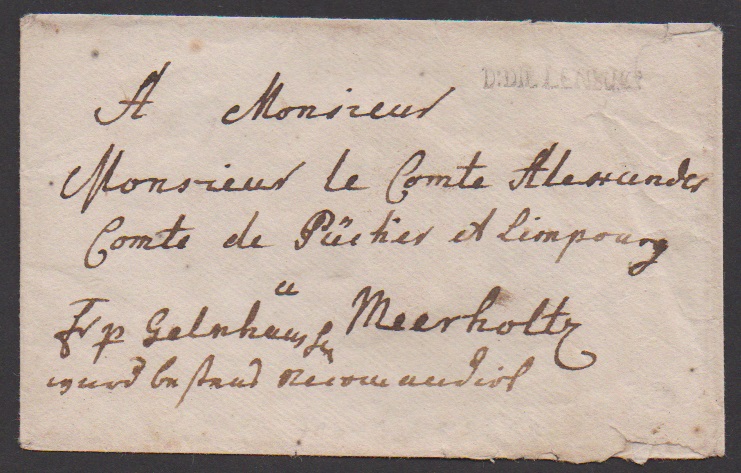 D:DILLENBURG
A Monsieur
Monsieur le Comte Alexander
Comte de Pückler et Limpourg
a
Meerholtz
Fr p Gelnhäussen
wird bestens recomandirt